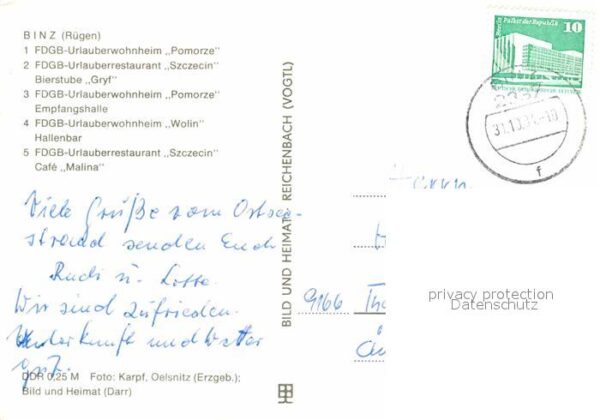 BINZ (Rügen)
1 FDGB-Urlauberwohnheim „Pomorze"
2 FDGB-Urlauberrestaurant „Szczecin"
Bierstube „Gryf"
3 FDGB-Urlauberwohnheim „Pomorze"
Empfangshalle
4 FDGB-Urlauberwohnheim „Wolin"
Hallenbar
5 FDGB-Urlauberrestaurant „Szczecin"
Café „Malina"
Viele Grüße vom Ostsee-
strand senden Euch
Rudi u. Lotte.
Wir sind zufrieden.
Unterkunft und Wetter
gut.
DDR 0,25 M Foto: Karpf, Oelsnitz (Erzgeb.);
Bild und Heimat (Darr)
BILD UND HEIMAT REICHENBACH (VOGTL)
Berlin, Palast der Republik
10
f
Herrn
9166
privacy protection
Datenschutz